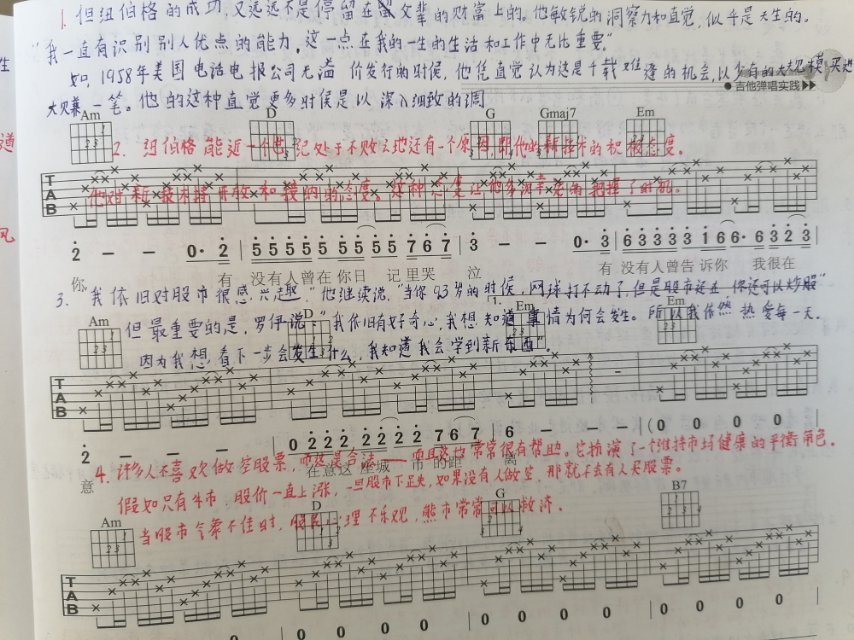 1. 但纽伯格的成功，又远远不是停留在成父辈的财富上的。他敏锐的洞察力和直觉，似乎是天生的。
"我一直有识别别人优点的能力，这一点在我的一生的生活和工作中无比重要。"
如，1958年美国电话电报公司无溢价发行的时候，他凭直觉认为这是千载难逢的机会，以少有的大规模买进
● 吉他弹唱实践 ▶▶
大贝赛一笔。他的这种直觉更多时候是以深入细致的调
Am D G Gmaj7 Em
2. 纽伯格能近一个世纪处于不败之地还有一个原因，即他对新技术的积极态度。
TAB
他对新技术持开放和接纳的态度，这种态度让他多次幸运的把握了时机。
2 - - 0· 2 5 5 5 5 5 5 5 5 5 7 6 7 3 - - 0· 3 6 3 3 3 3 1 6 6· 6 3 2 3
你 有 没有人曾在你日 记里哭 泣 有 没有人曾告诉你 我很在
3. 我依旧对股市很感兴趣。"他继续说，"当你93岁的时候，网球打不动了，但是股市还在，你还可以炒股"
Am D 1. Em Em
但最重要的是，罗伊说："我依旧有好奇心，我想知道事情为何会发生。所以我依然热爱每一天.
因为我想看下一步会发生什么，我知道我会学到新东西"。
TAB
2 - - - 0 2 2 2 2 2 2 2 2 7 6 7 6 - - - (0 0 0 0
意 在意这 座城 市的距 离
4. 许多人不喜欢做空股票，而这是合法——而且这也常常很有帮助。它扮演了一个维持市场健康的平衡角色。
假如只有牛市，股价一直上涨，一旦股市下走，如果没有人做空，那就不会有人买股票。
Am D G B7
当股市气氛不佳时，股民心理不乐观，熊市常常可以救济.
TAB
0 0 0 0 0 0 0 0 0 0 0 0 0 0